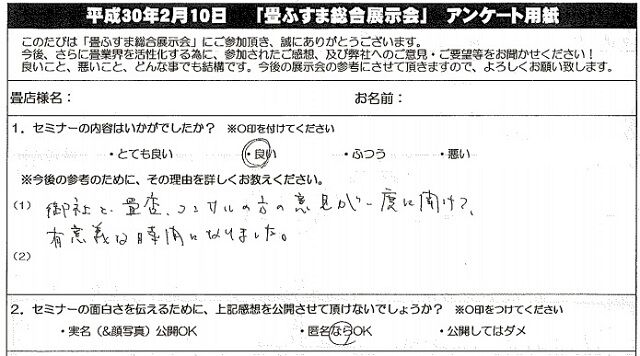 平成30年2月10日 「畳ふすま総合展示会」 アンケート用紙
このたびは「畳ふすま総合展示会」にご参加頂き、誠にありがとうございます。
今後、さらに畳業界を活性化する為に、参加されたご感想、及び弊社へのご意見・ご要望等をお聞かせください！
良いこと、悪いこと、どんな事でも結構です。今後の展示会の参考にさせて頂きますので、よろしくお願い致します。
畳店様名： お名前：
1．セミナーの内容はいかがでしたか？ ※○印を付けてください
・とても良い ・良い ・ふつう ・悪い
※今後の参考のために、その理由を詳しくお教えください。
(1) 御社と、畳店、コンサルの方の意見が一度に聞けて、
有意義な時間になりました。
(2)
2．セミナーの面白さを伝えるために、上記感想を公開させて頂けないでしょうか？ ※○印をつけてください
・実名（&顔写真）公開OK ・匿名ならOK ・公開してはダメ